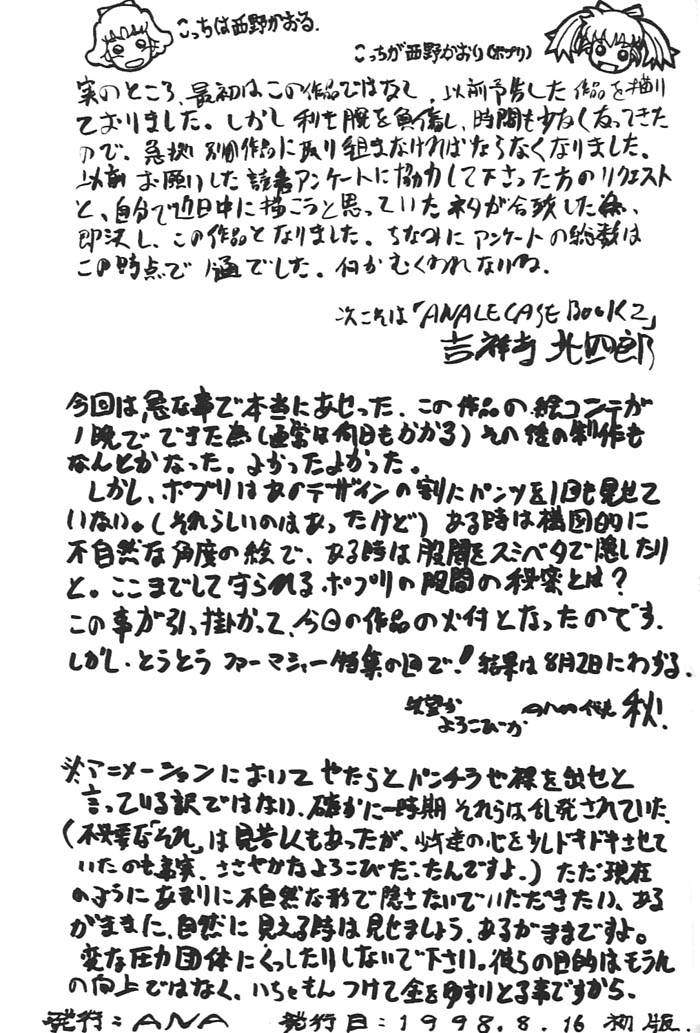 こっちは西野かおる.
こっちが西野かおり(ポプリ)
実のところ、最初はこの作品ではなく、以前予告した作品を描い
ておりました。しかし利き腕を負傷し、時間も少なくなってきた
ので、急拠 別個作品に取り組まなければならなくなりました。
以前 お願いした読者アンケートに協力して下さった方のリクエスト
と、自分で近日中に描こうと思っていたネタが合致した為、
即決し、この作品となりました。ちなみに アンケートの総数は
この時点で 1通でした。何かむくわれないね.
次こそは「ANALE CASE BOOK 2」
吉祥寺 北四郎
今回は急な事で本当にあせった. この作品の絵コンテが
1晩で できた為(通常は何日もかかる)その後の制作も
なんとかなった. よかったよかった。
しかし、ポプリはあのデザインの割にパンツを1回も見せて
いない。(それらしいのはあったけど) ある時は構図的に
不自然な角度の絵で、ある時は股間をスミベタで隠したり
と。ここまでして守られる ポプリの股間の秘密とは?
この事が引っ掛かって、今回の作品の火付となったのです.
しかし・とうとう ファーマシャー特集の回で!結果は8月2日にわかる.
よろこびーか
秋!
※アニメーションにおいて やたらとパンチラや裸を出せと
言っている訳ではない. 確かに一時期 それらは乱発されていた.
(不必要な「それ」は見苦しくもあったが、少年達の心を少しドキドキさせて
いたのも事実. ささやかなよろこびだったんですよ.) ただ現在
のように あまりに不自然な形で隠さないでいただきたい、ある
がままに、自然に 見える時は見せましょう. あるがままですよ。
変な圧力団体にくっしたりしないで下さい。彼らの目的はモラル
の向上ではなく、いちゃもん つけて金をゆすりとる事ですから.
発行:ANA 発行日:1998.8.16 初版.